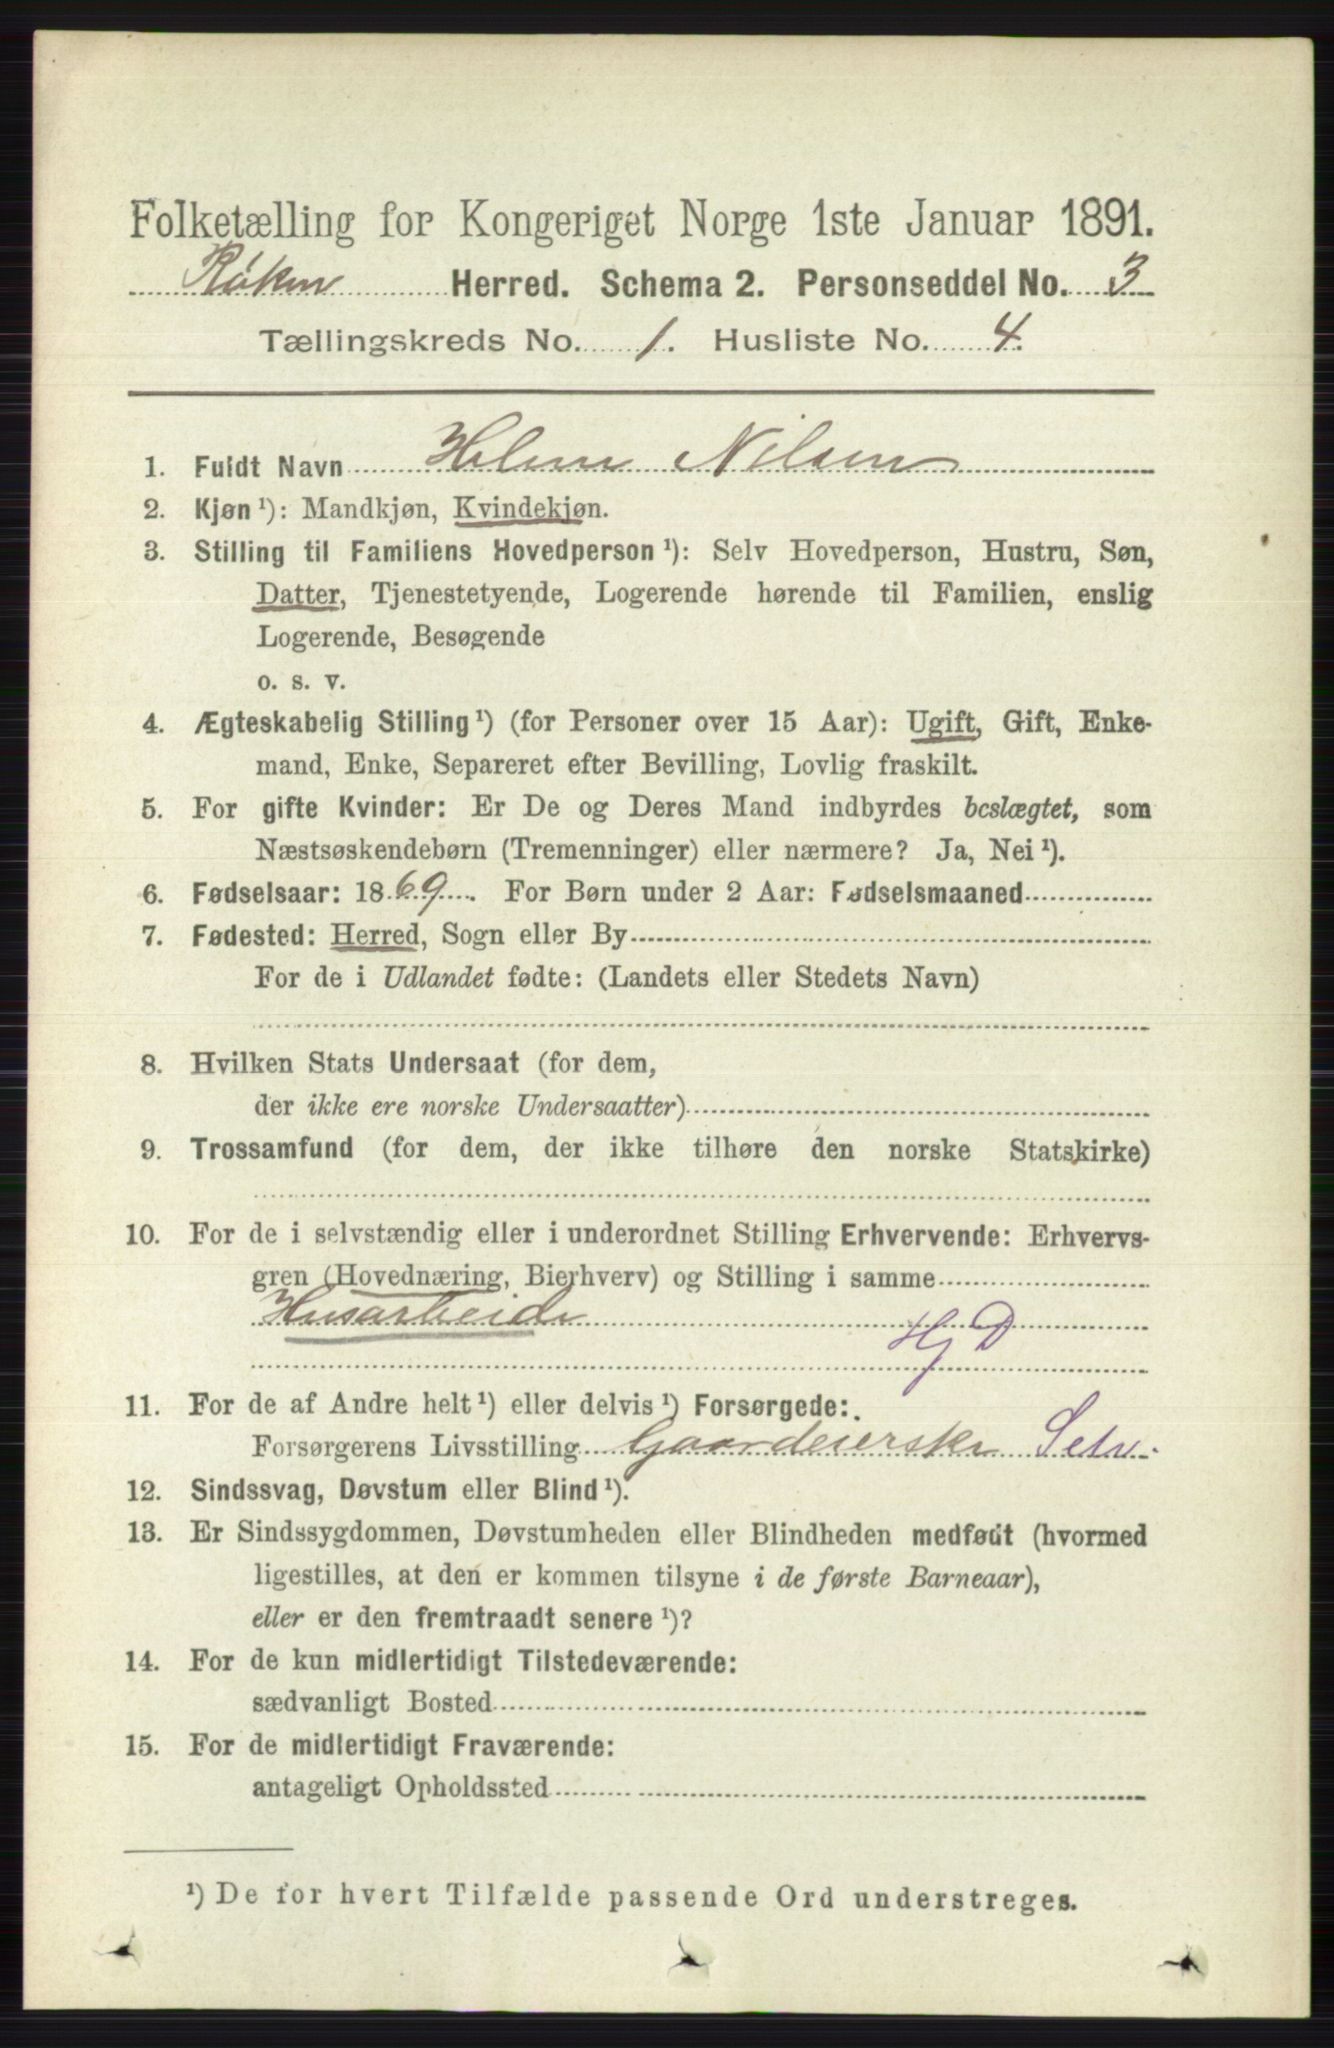 Folketælling for Kongeriget Norge 1ste Januar 1891.
Røken Herred. Schema 2. Personseddel No. 3
Tællingskreds No. 1. Husliste No. 4.
1. Fuldt Navn Helene Nilsen
2. Kjøn¹): Mandkjøn, Kvindekjøn.
3. Stilling til Familiens Hovedperson¹): Selv Hovedperson, Hustru, Søn,
Datter, Tjenestetyende, Logerende hørende til Familien, enslig
Logerende, Besøgende
o. s. v.
4. Ægteskabelig Stilling¹) (for Personer over 15 Aar): Ugift, Gift, Enke-
mand, Enke, Separeret efter Bevilling, Lovlig fraskilt.
5. For gifte Kvinder: Er De og Deres Mand indbyrdes beslægtet, som
Næstsøskendebørn (Tremenninger) eller nærmere? Ja, Nei¹).
6. Fødselsaar: 1869. For Børn under 2 Aar: Fødselsmaaned
7. Fødested: Herred, Sogn eller By
For de i Udlandet fødte: (Landets eller Stedets Navn)
8. Hvilken Stats Undersaat (for dem,
der ikke ere norske Undersaatter)
9. Trossamfund (for dem, der ikke tilhøre den norske Statskirke)
10. For de i selvstændig eller i underordnet Stilling Erhvervende: Erhvervs-
gren (Hovednæring, Bierhverv) og Stilling i samme
Husarbeide
HjD
11. For de af Andre helt¹) eller delvis¹) Forsørgede:
Forsørgerens Livsstilling Gaardeierske Selv.
12. Sindssvag, Døvstum eller Blind¹).
13. Er Sindssygdommen, Døvstumheden eller Blindheden medfødt (hvormed
ligestilles, at den er kommen tilsyne i de første Barneaar),
eller er den fremtraadt senere¹)?
14. For de kun midlertidigt Tilstedeværende:
sædvanligt Bosted
15. For de midlertidigt Fraværende:
antageligt Opholdssted
¹) De for hvert Tilfælde passende Ord understreges.